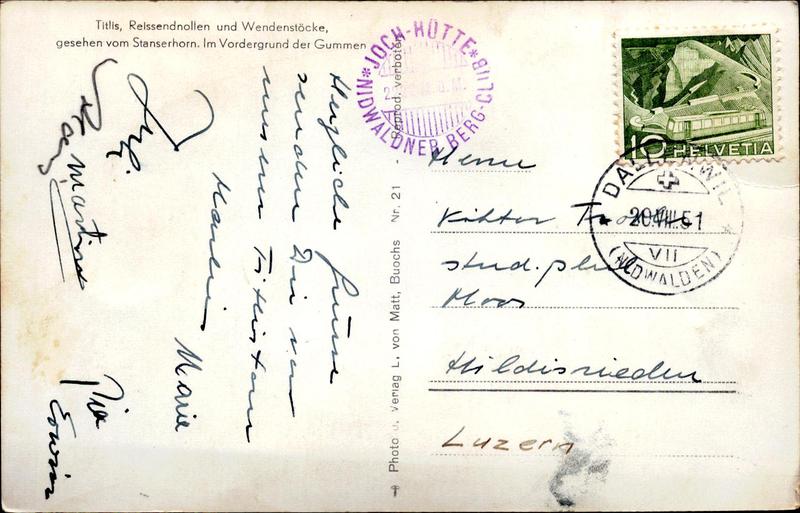 Titlis, Reissendnollen und Wendenstöcke,
gesehen vom Stanserhorn. Im Vordergrund der Gummen
Reprod. verboten
Photo u. Verlag L. von Matt, Buochs Nr. 21
*JOCH-HÜTTE*
NIDWALDNER BERG-CLUB
10 HELVETIA
DALLENWIL
20.VIII.51
VII
(NIDWALDEN)
Herzliche Grüsse
senden Dir von
unserer
Marie
Martina
Pia
Erwin
Herrn
stud. phil
Moos
Hildisrieden
Luzern